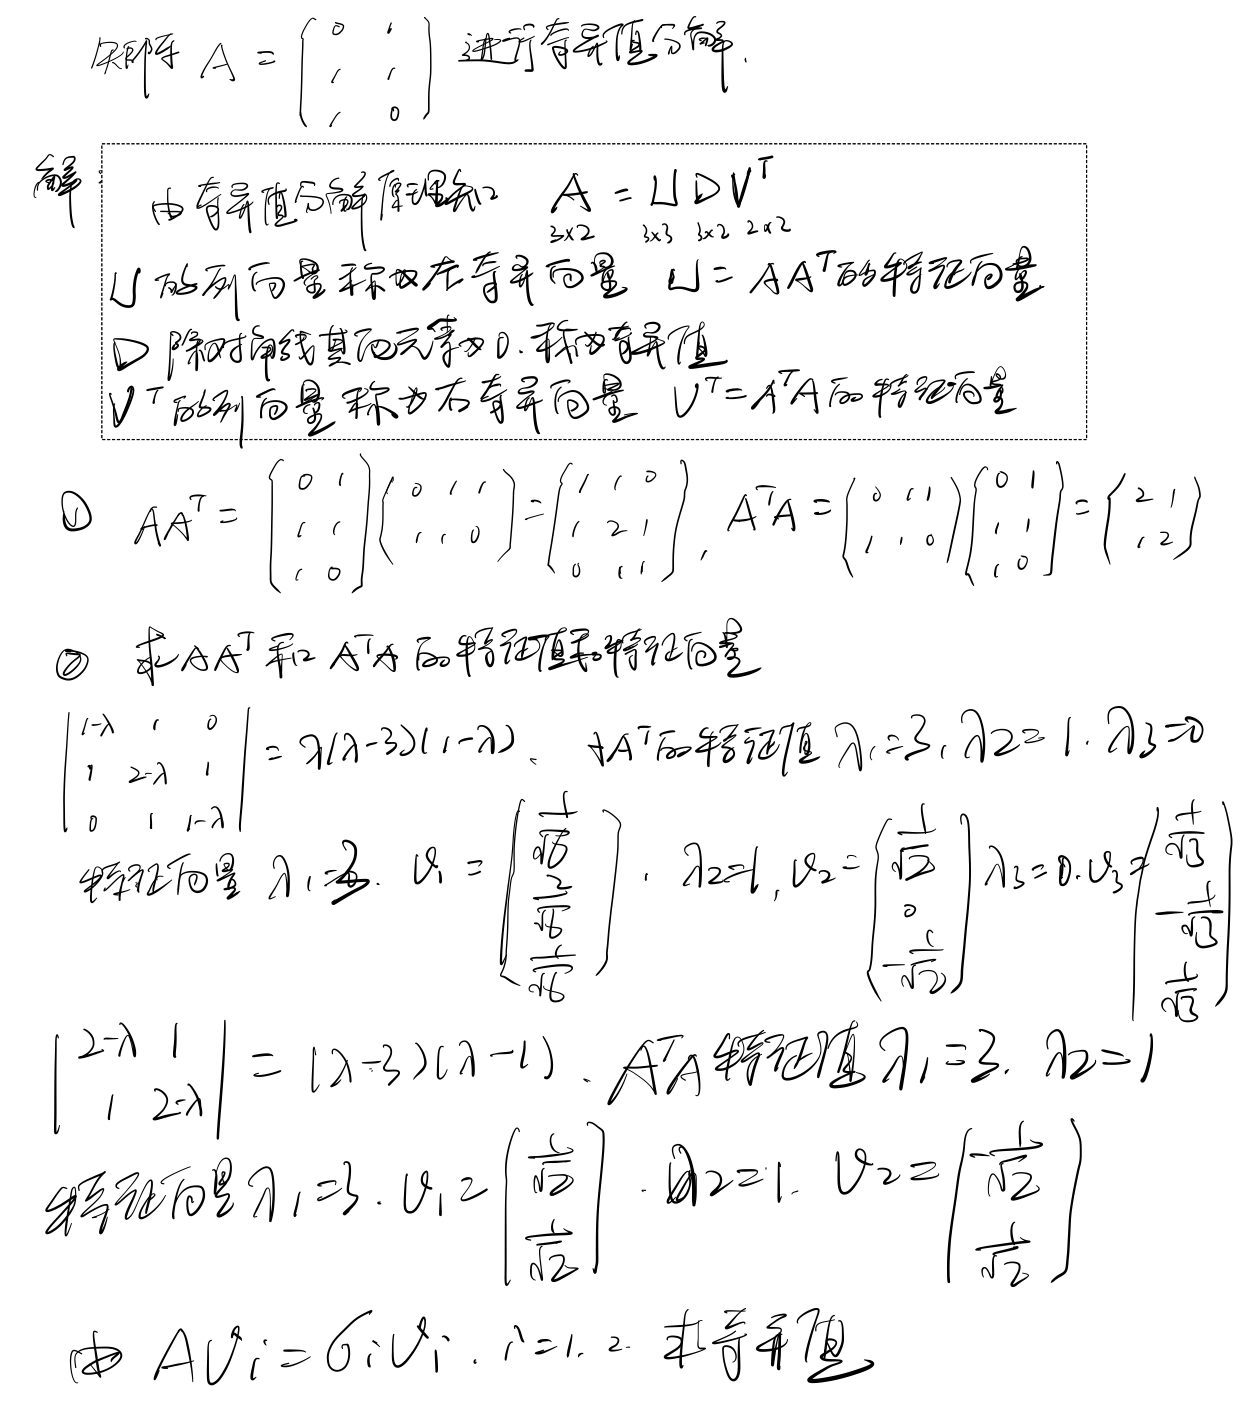 矩阵 A = ( 0 1 ; 1 1 ; 1 0 ) 进行奇异值分解.
解: 由奇异值分解原理知 A = U D V^T
3x2 3x3 3x2 2x2
U 的列向量称为左奇异向量 U = AA^T的特征向量
D 除对角线其他元素为0.称为奇异值
V^T的列向量称为右奇异向量 V^T=A^TA的特征向量
① AA^T = ( 0 1 ; 1 1 ; 1 0 ) ( 0 1 1 ; 1 1 0 ) = ( 1 1 0 ; 1 2 1 ; 0 1 1 ), A^TA = ( 0 1 1 ; 1 1 0 ) ( 0 1 ; 1 1 ; 1 0 ) = ( 2 1 ; 1 2 )
② 求AA^T和A^TA的特征值和特征向量
| 1-λ 1 0 ; 1 2-λ 1 ; 0 1 1-λ | = λ(λ-3)(1-λ). AA^T的特征值 λ1=3, λ2=1. λ3=0
特征向量 λ1=3. v1 = ( 1/√6 ; 2/√6 ; 1/√6 ). λ2=1, v2= ( 1/√2 ; 0 ; -1/√2 ) λ3=0. v3= ( 1/√3 ; -1/√3 ; 1/√3 )
| 2-λ 1 ; 1 2-λ | = (λ-3)(λ-1). A^TA特征值λ1=3. λ2=1
特征向量λ1=3. v1= ( 1/√2 ; 1/√2 ). λ2=1. v2= ( -1/√2 ; 1/√2 )
由 Avi=σivi. i=1.2. 求奇异值